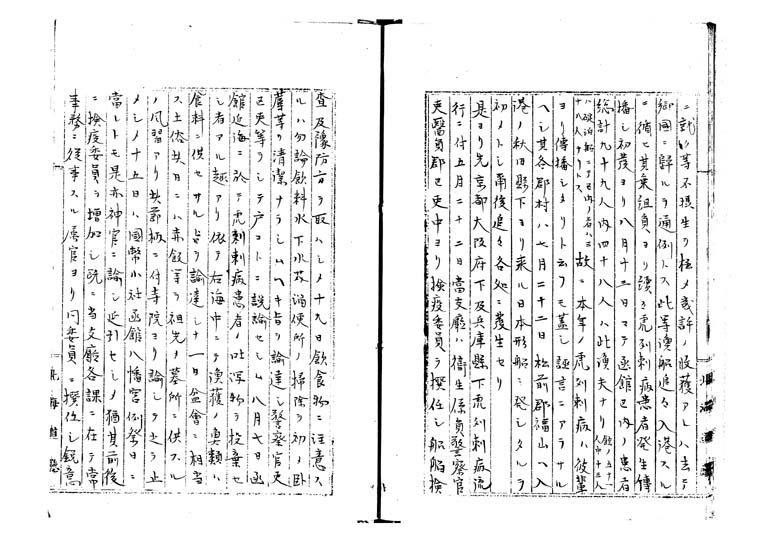 ニ就ク等不摂生ヲ極メ幾許ノ収獲アレハ去テ
郷國ニ歸ルヲ通例トス此等漁船追々入港スル
ニ循ヒ其乗組員ヨリ續々虎列剌病患者発生傳
播シ初発ヨリ八月十三日マテ函館區内ノ患者
総計九十九人内四十八人ハ此漁夫ナリ
故ニ本年ノ虎列剌病ハ彼輩
ヨリ傳播シタリト云フモ蓋シ誣言ニアラサル
ヘシ其各郡村ハ七月二十二日松前郡福山ヘ入
港ノ秋田縣下ヨリ来ル日本形船ニ発シタルヲ
初メトシ爾後追々各処ニ蔓生セリ
是ヨリ先京都大阪府下及兵庫縣下虎列剌病流
行ニ付五月二十二日當支廳ハ衛生係員警察官
吏醫員郡區吏中ヨリ検疫委員ヲ撰任シ船舶検
査及豫防方ヲ取ハシメ十九日飲食物ニ注意ス
ルハ勿論飲料水下水芥溜便所ノ掃除ヲ初メ卧
蓐等ヲ清潔ナラシムヘキ旨ヲ諭達シ警察官吏
區吏等ヲシテ戸コトニ説諭セシム八月七日函
館近海ニ於テ虎列剌病患者ノ吐瀉物ヲ投棄セ
シ者アル趣ヨリ依テ右海中ニテ漁獲ノ魚類ハ
食料ニ供セサル旨ヲ諭達シ十一日盆會ニ相当
ス土俗秋日ニハ赤飯等ヲ祖先ノ墓所ニ供スル
ノ風習アリ此節柄ニ付寺院ヨリ諭シテ之ヲ止
メシメ十五日ハ國幣小社函館八幡宮例祭日ニ
當レトモ是亦神官ニ諭シ延引セシメ猶其前後
ニ検疫委員ヲ増加シ既ニ当支廳各課ニ在テ常
事務ニ従事スル属官ヨリ同委員ニ撰任シ鋭意